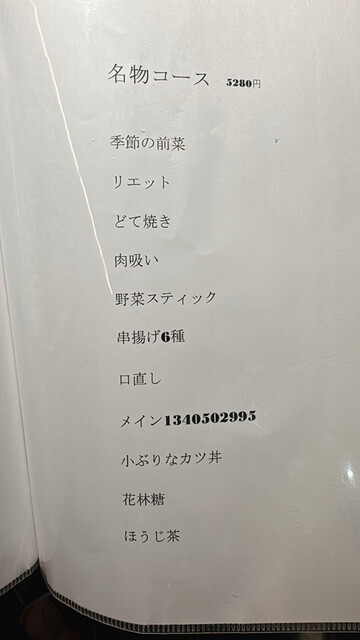 名物コース 5280円
季節の前菜
リエット
どて焼き
肉吸い
野菜スティック
串揚げ6種
口直し
メイン1340502995
小ぶりなカツ丼
花林糖
ほうじ茶